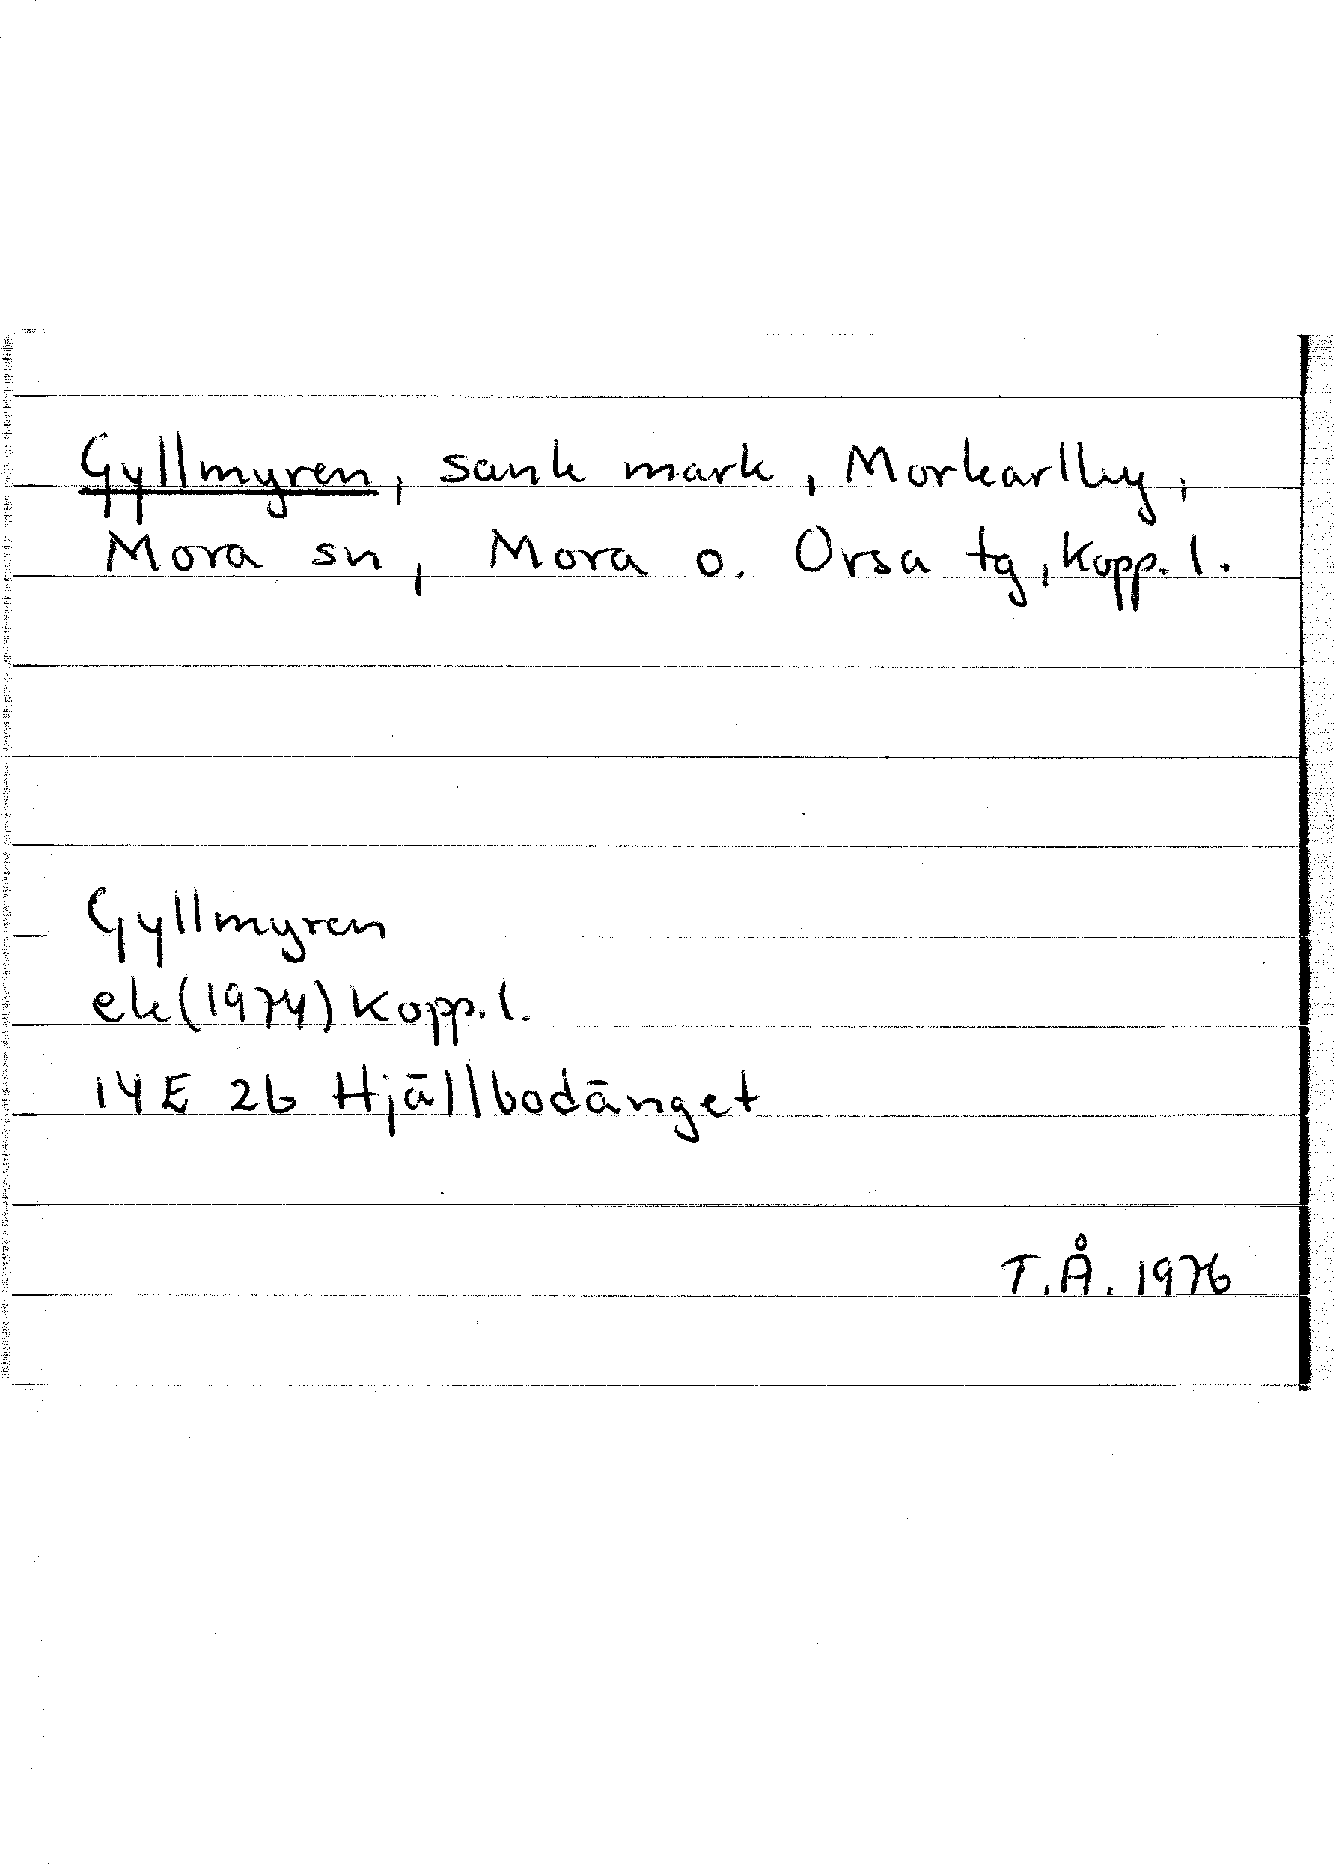 Gyllmyren, sank mark, Morkarlby,
Mora sn, Mora o. Orsa tg, Kopp. l.
Gyllmyren
ek (1974) Kopp. l.
14E 2b Hjällbodänget
T.Å. 1976